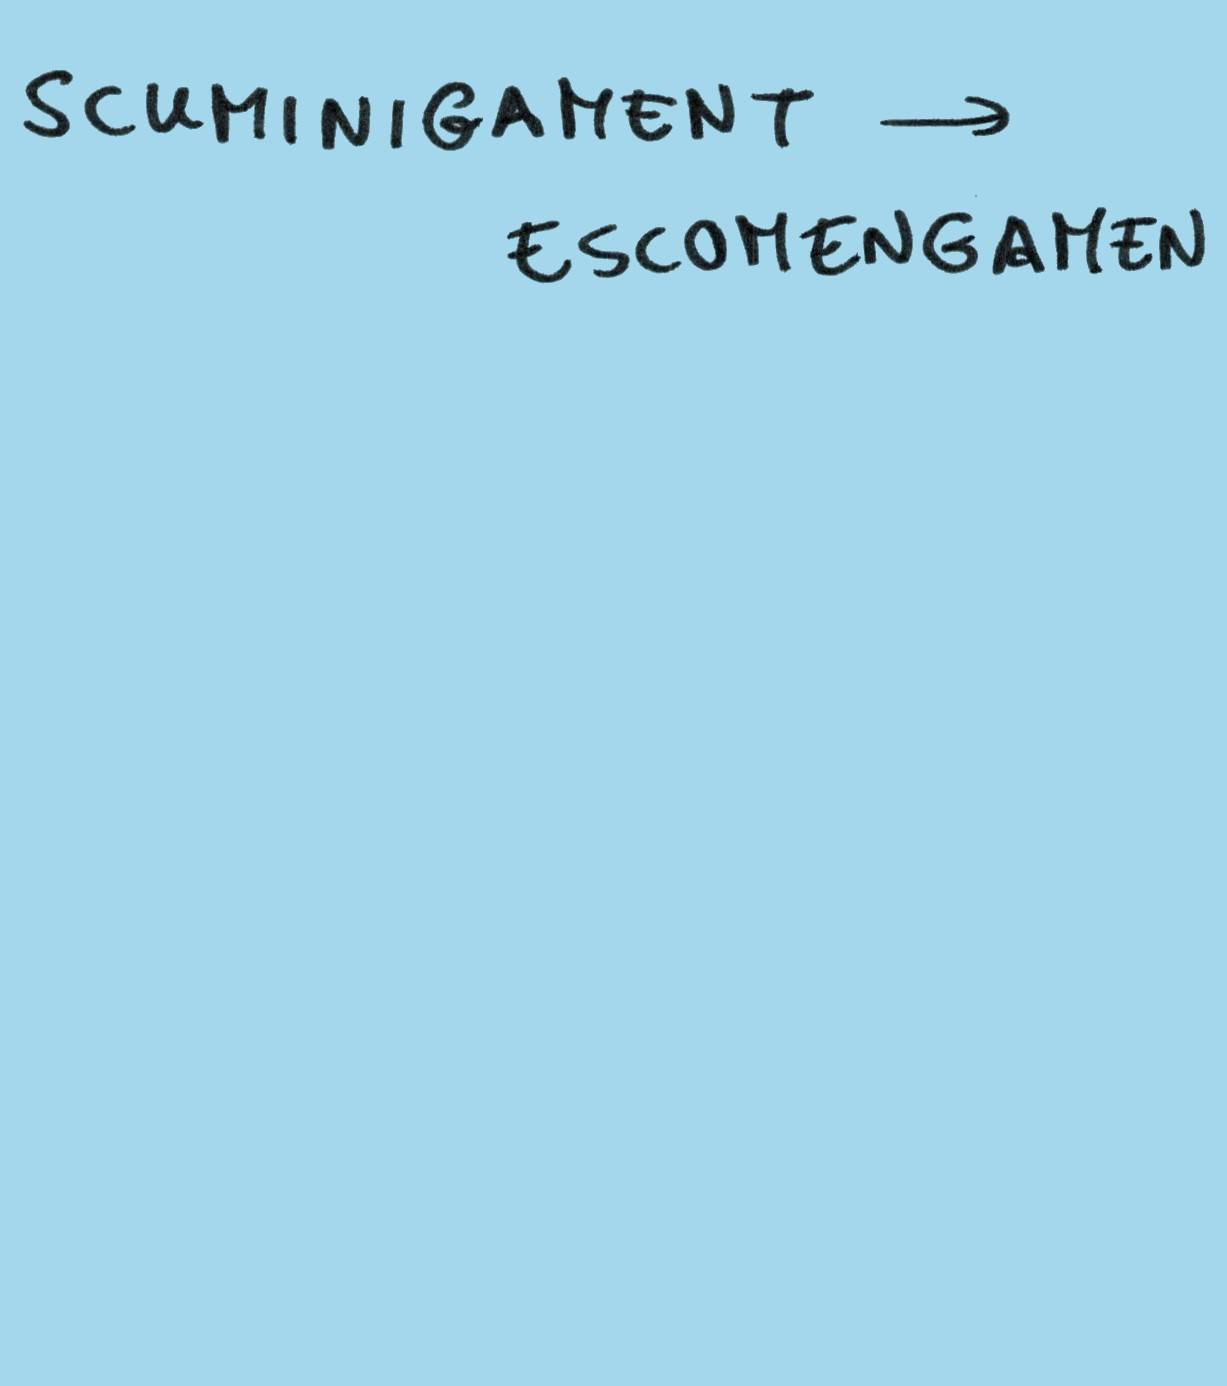 SCUMINIGAMENT →
ESCOMENGAMEN